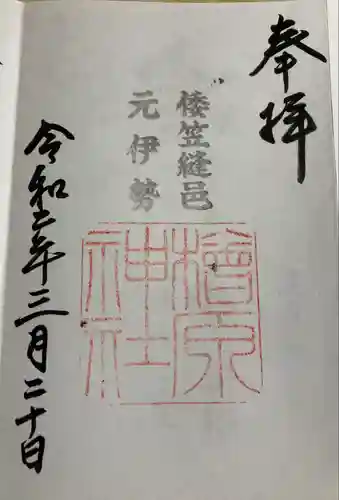 奉拝
倭笠縫邑
元伊勢
檜原
神社
令和五年三月二十日